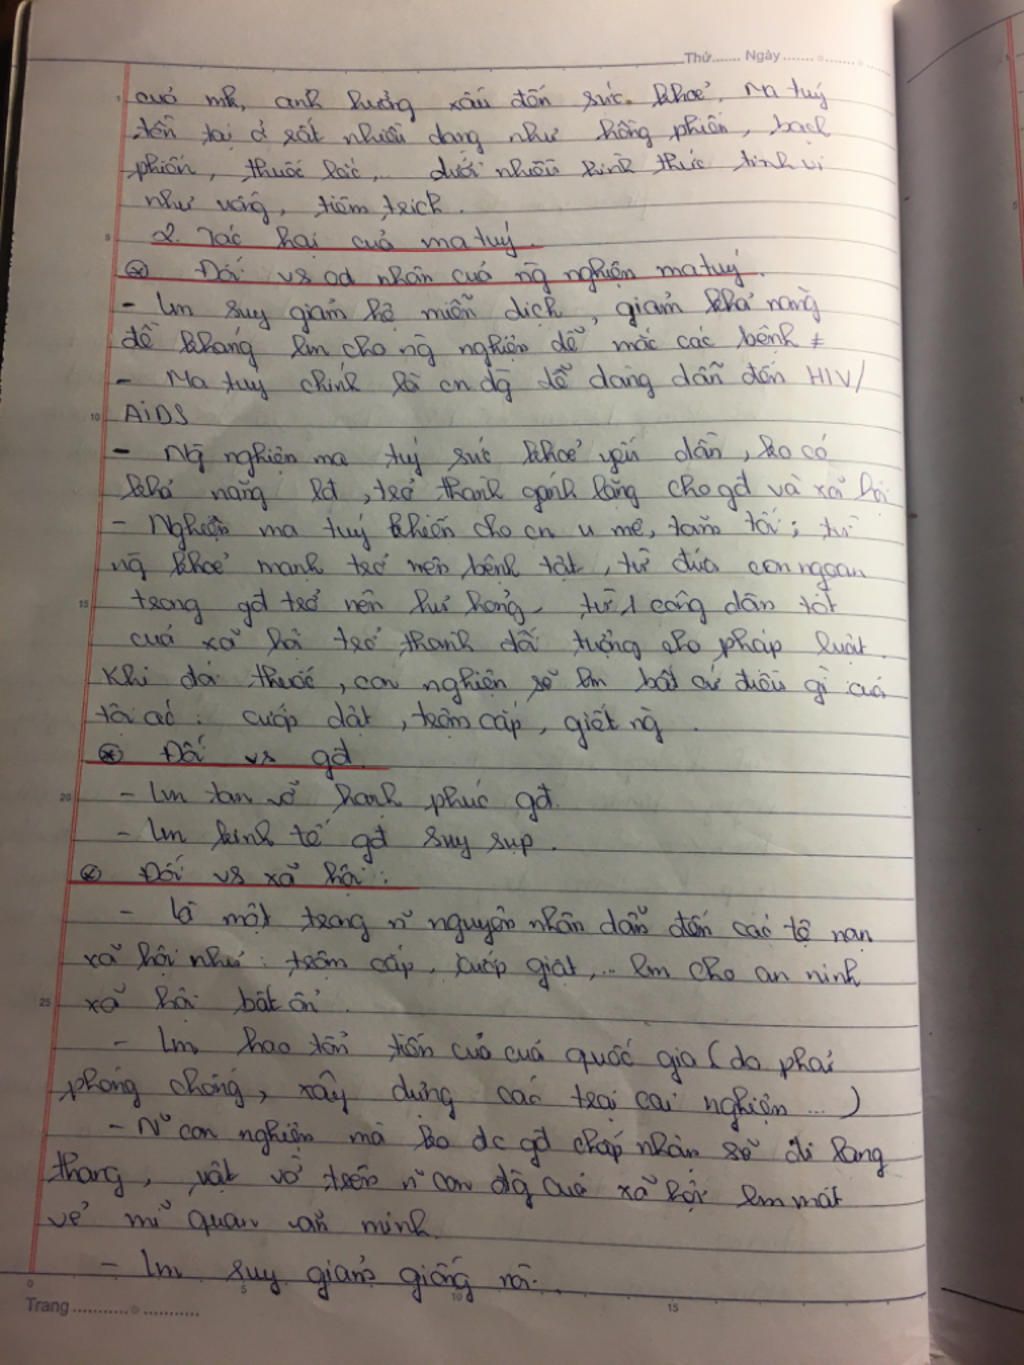 Thứ....... Ngày.......
của mk, ảnh hưởng xấu đến sức khoẻ. Ma tuý
tồn tại ở rất nhiều dạng như hồng phiến, bạch
phiến, thuốc lắc,... dưới nhiều hình thức tinh vi
như uống, tiêm trích.
2. Tác hại của ma tuý.
Đối vs cá nhân của ng̃ nghiện ma tuý.
- lm suy giảm hệ miễn dịch, giảm khả năng
đề kháng lm cho ng̃ nghiện dễ mắc các bệnh ≠
- Ma tuý chính là cn đg̃ dễ dàng dẫn đến HIV/
AiDS
- Ng̃ nghiện ma tuý sức khoẻ yếu dần, ko có
khả năng lđ, trở thành gánh lặng cho gđ và xã hội
- Nghiện ma tuý khiến cho cn u mê, tăm tối; từ
ng̃ khoẻ mạnh trở nên bệnh tật, từ đứa con ngoan
trong gđ trở nên hư hỏng, từ 1 công dân tốt
của xã hội trở thành đối tượng cho pháp luật.
Khi đói thuốc, con nghiện sẽ lm bất cứ điều gì của
tội ác: cướp dật, trộm cắp, giết ng̃.
Đối vs gđ.
- lm tan vỡ hạnh phúc gđ.
- lm kinh tế gđ suy sụp.
Đối vs xã hội:
- là một trong n~ nguyên nhân dẫn đến các tệ nạn
xã hội như: trộm cắp, cướp giật,... lm cho an ninh
xã hội bất ổn.
- lm hao tổn tiền của của quốc gia (do phải
phòng chống, xây dựng các trại cai nghiện ...)
- N~ con nghiện mà ko dc gđ chấp nhận sẽ đi lang
thang, vật vờ trên n~ con đg̃ của xã hội lm mất
vẻ mĩ quan văn minh.
- lm suy giảm giống nòi.
Trang